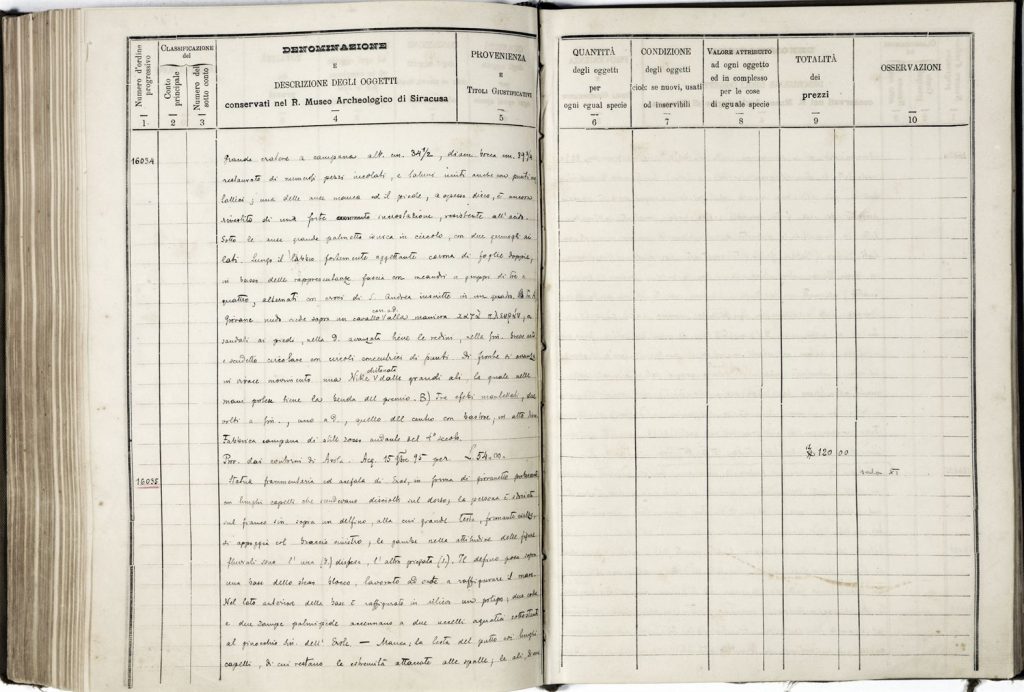 Numero d'ordine progressivo
CLASSIFICAZIONE del
Conto principale
Numero del sotto conto
DENOMINAZIONE
E
DESCRIZIONE DEGLI OGGETTI
conservati nel R. Museo Archeologico di Siracusa
PROVENIENZA
E
TITOLI GIUSTIFICATIVI
1
2
3
4
5
QUANTITÀ
degli oggetti
per
ogni egual specie
6
CONDIZIONE
degli oggetti
cioè: se nuovi, usati
od inservibili
7
VALORE ATTRIBUITO
ad ogni oggetto
ed in complesso
per le cose
di eguale specie
8
TOTALITÀ
dei
prezzi
9
OSSERVAZIONI
10
16034
Grande cratere a campana alt. cm. 34 1/2, diam. bocca cm.
restaurato di numerosi pezzi incollati, e taluni uniti anche con punti
; una delle anse manca ed il piede, a spesso disco, è ancora
rivestito di una forte incrostazione, resistente all'acido.
Sotto le anse grande palmetta in circolo, con due ai
lati. Lungo il labbro fortemente aggettante corona di foglie doppie,
in basso delle rappresentanze fascia con meandri a gruppi di tre e
quattro, alternati con croci di S. Andrea inscritte in un quadro.
Giovane nudo siede sopra un cavallo alla maniera
sandali ai piede, nella D. avanzata tiene le redini, nella sin.
e scudetto circolare con circoli concentrici di punti. Di fronte si avanza
in vivace movimento una Nike dalle grandi ali, la quale nelle
mani tiene la benda del premio. B) Tre efebi mantellati, due
volti a sin., uno a D., quello del centro con bastone, in alto
Fabbrica campana di stile rosso andante del 4° secolo.
Prov. dai contorni di Avola. Acq. 15 95 per £ 54.00.
120 00
16035
Statua frammentaria ed acefala di Eros, in forma di giovanetto
con lunghi capelli che scendevano disciolti sul dorso; la persona è sdraiata
sul fianco sin. sopra un delfino, alla cui grande testa,
si appoggia col braccio sinistro, le gambe nella attitudine delle figure
fluviali sono l'una (D.) distesa, l'altra piegata (S.). Il delfino posa sopra
una base dello stesso blocco, lavorata ad onde a raffigurare il mare.
Nel lato anteriore della base è raffigurato in rilievo un polipo; due code
e due zampe palmipede accennano a due uccelli aquatici sottostanti
al ginocchio sin. dell'Erote — Manca, la testa del putto coi lunghi
capelli, di cui restano le estremità attaccate alle spalle; le ali,